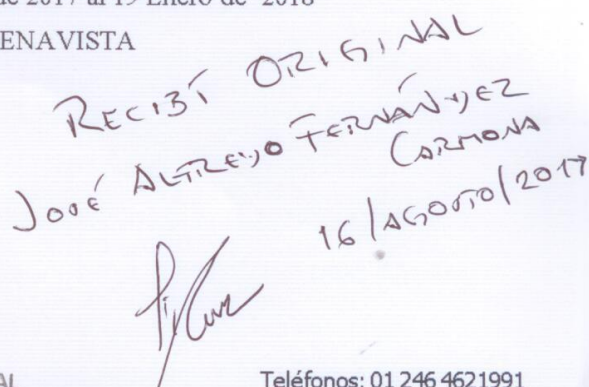 de 2017 al 19 Enero de 2018
ENAVISTA
RECIBÍ ORIGINAL
JOSÉ ALFREDO FERNÁNDEZ
CARMONA
16/AGOSTO/2017
AL
Teléfonos: 01 246 4621991